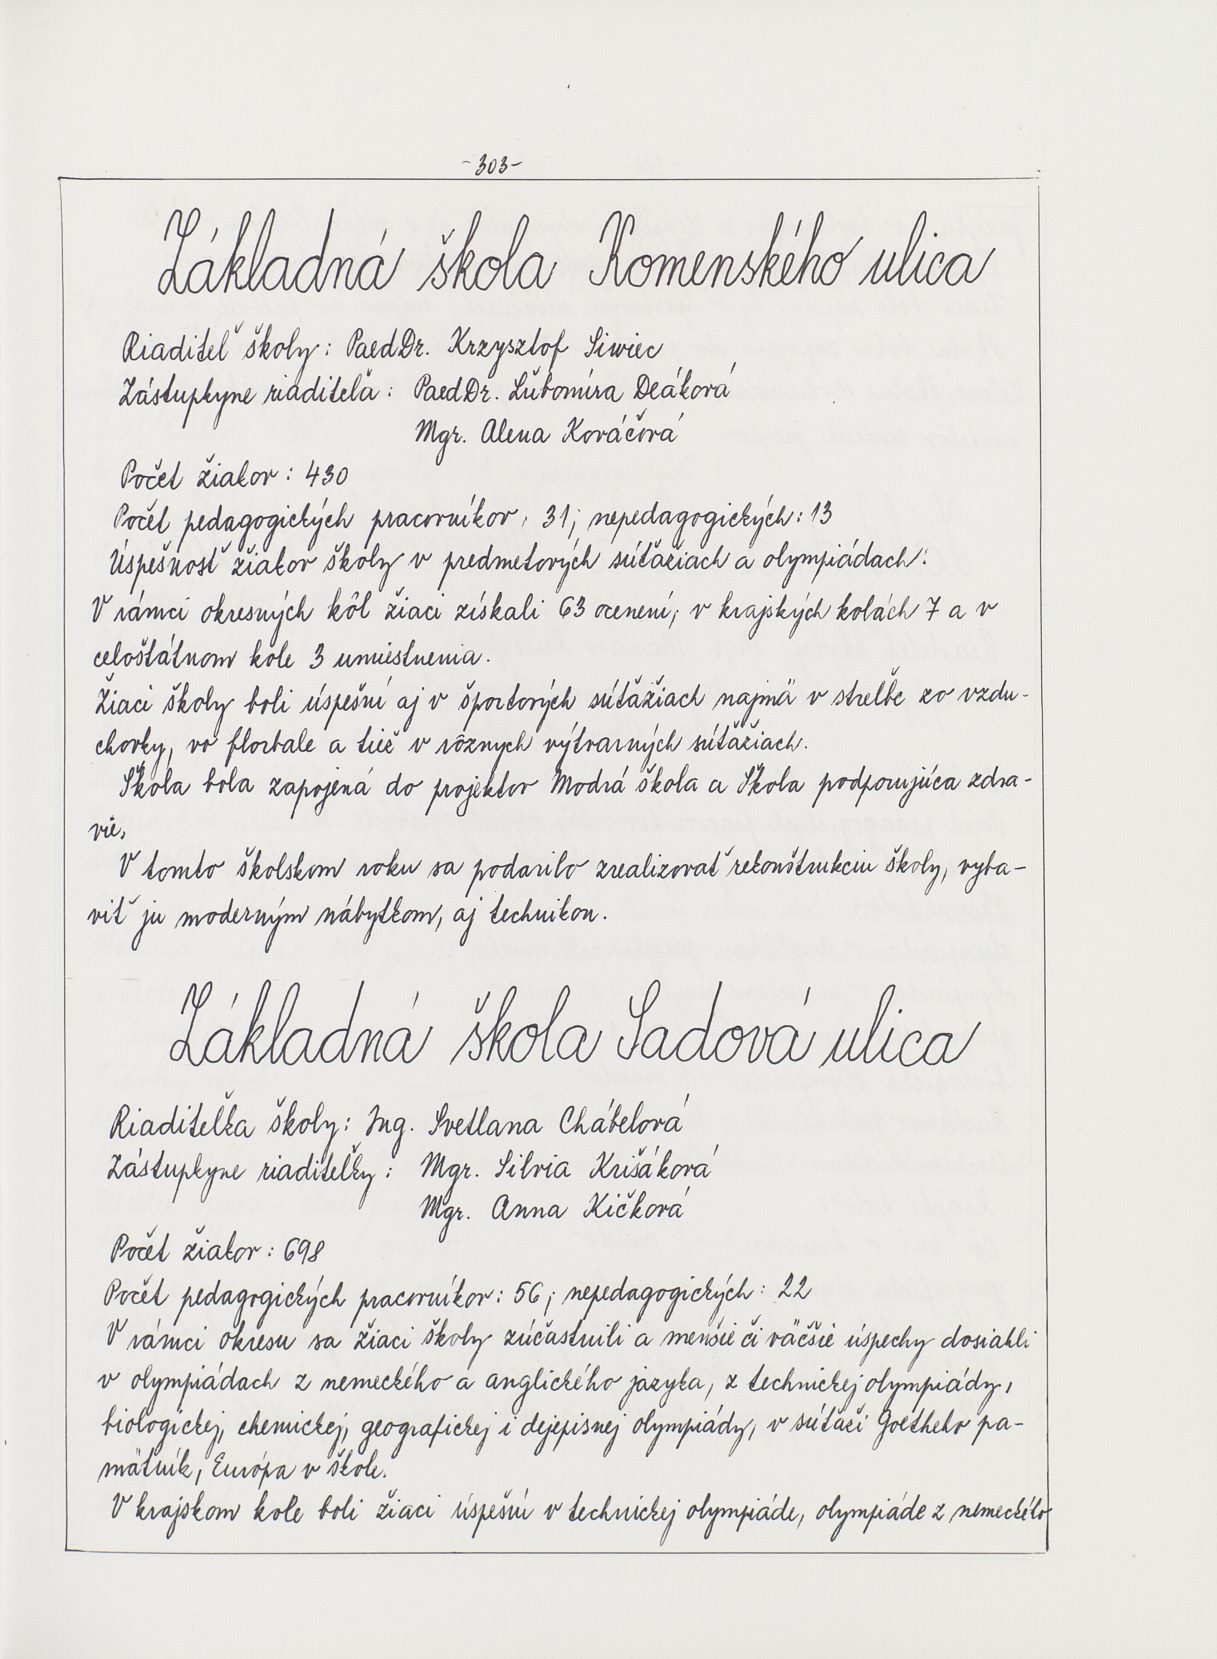 -303-
Základná škola Komenského ulica
Riaditeľ školy: PaedDr. Krzysztof Siwiec
Zástupkyne riaditeľa: PaedDr. Ľubomíra Deáková
Mgr. Alena Kováčová
Počet žiakov: 430
Počet pedagogických pracovníkov: 31; nepedagogických: 13
Úspešnosť žiakov školy v predmetových súťažiach a olympiádach:
V rámci okresných kôl žiaci získali 63 ocenení, v krajských kolách 7 a v
celoštátnom kole 3 umiestnenia.
Žiaci školy boli úspešní aj v športových súťažiach najmä v streľbe zo vzdu-
chovky, vo florbale a tiež v rôznych výtvarných súťažiach.
Škola bola zapojená do projektov Modrá škola a Škola podporujúca zdra-
vie.
V tomto školskom roku sa podarilo zrealizovať rekonštrukciu školy, vyba-
viť ju moderným nábytkom, aj technikou.
Základná škola Sadová ulica
Riaditeľka školy: Ing. Svetlana Chábelová
Zástupkyne riaditeľky: Mgr. Silvia Krišáková
Mgr. Anna Kičková
Počet žiakov: 698
Počet pedagogických pracovníkov: 56; nepedagogických: 22
V rámci okresu sa žiaci školy zúčastnili a menšie či väčšie úspechy dosiahli
v olympiádach z nemeckého a anglického jazyka, z technickej olympiády,
biologickej, chemickej, geografickej i dejepisnej olympiády, v súťaži Goetheho pa-
mätník, Európa v škole.
V krajskom kole boli žiaci úspešní v technickej olympiáde, olympiáde z nemeckého